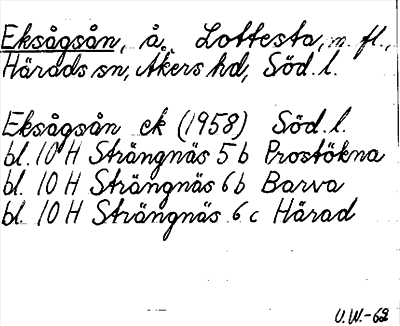 Eksågsån, å, Lottesta, m. fl.,
Härads sn, Åkers hd, Söd. l.
Eksågsån ek (1958) Söd. l.
bl. 10 H Strängnäs 5 b Prostökna
bl. 10 H Strängnäs 6 b Barva
bl. 10 H Strängnäs 6 c Härad
V. W.-62